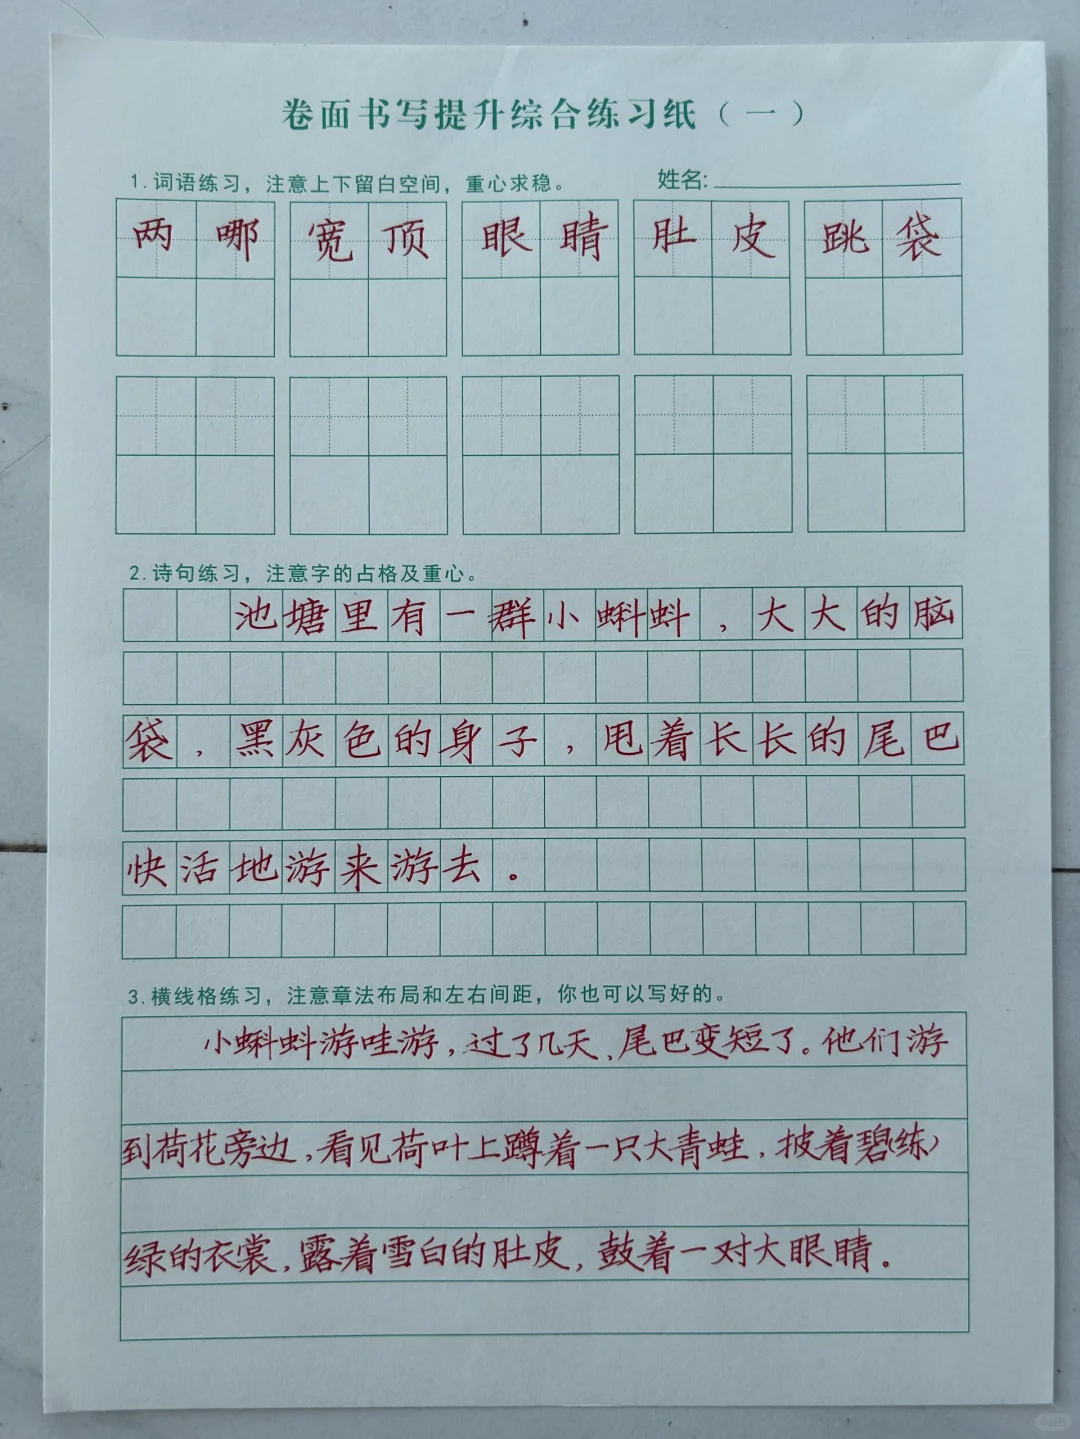 卷面书写提升综合练习纸（一）
1.词语练习，注意上下留白空间，重心求稳。 姓名:
两哪 宽顶 眼睛 肚皮 跳袋
2.诗句练习，注意字的占格及重心。
池塘里有一群小蝌蚪，大大的脑
袋，黑灰色的身子，甩着长长的尾巴
快活地游来游去。
3.横线格练习，注意章法布局和左右间距，你也可以写好的。
小蝌蚪游哇游，过了几天、尾巴变短了。他们游
到荷花旁边，看见荷叶上蹲着一只大青蛙，披着碧(练)
绿的衣裳，露着雪白的肚皮，鼓着一对大眼睛。